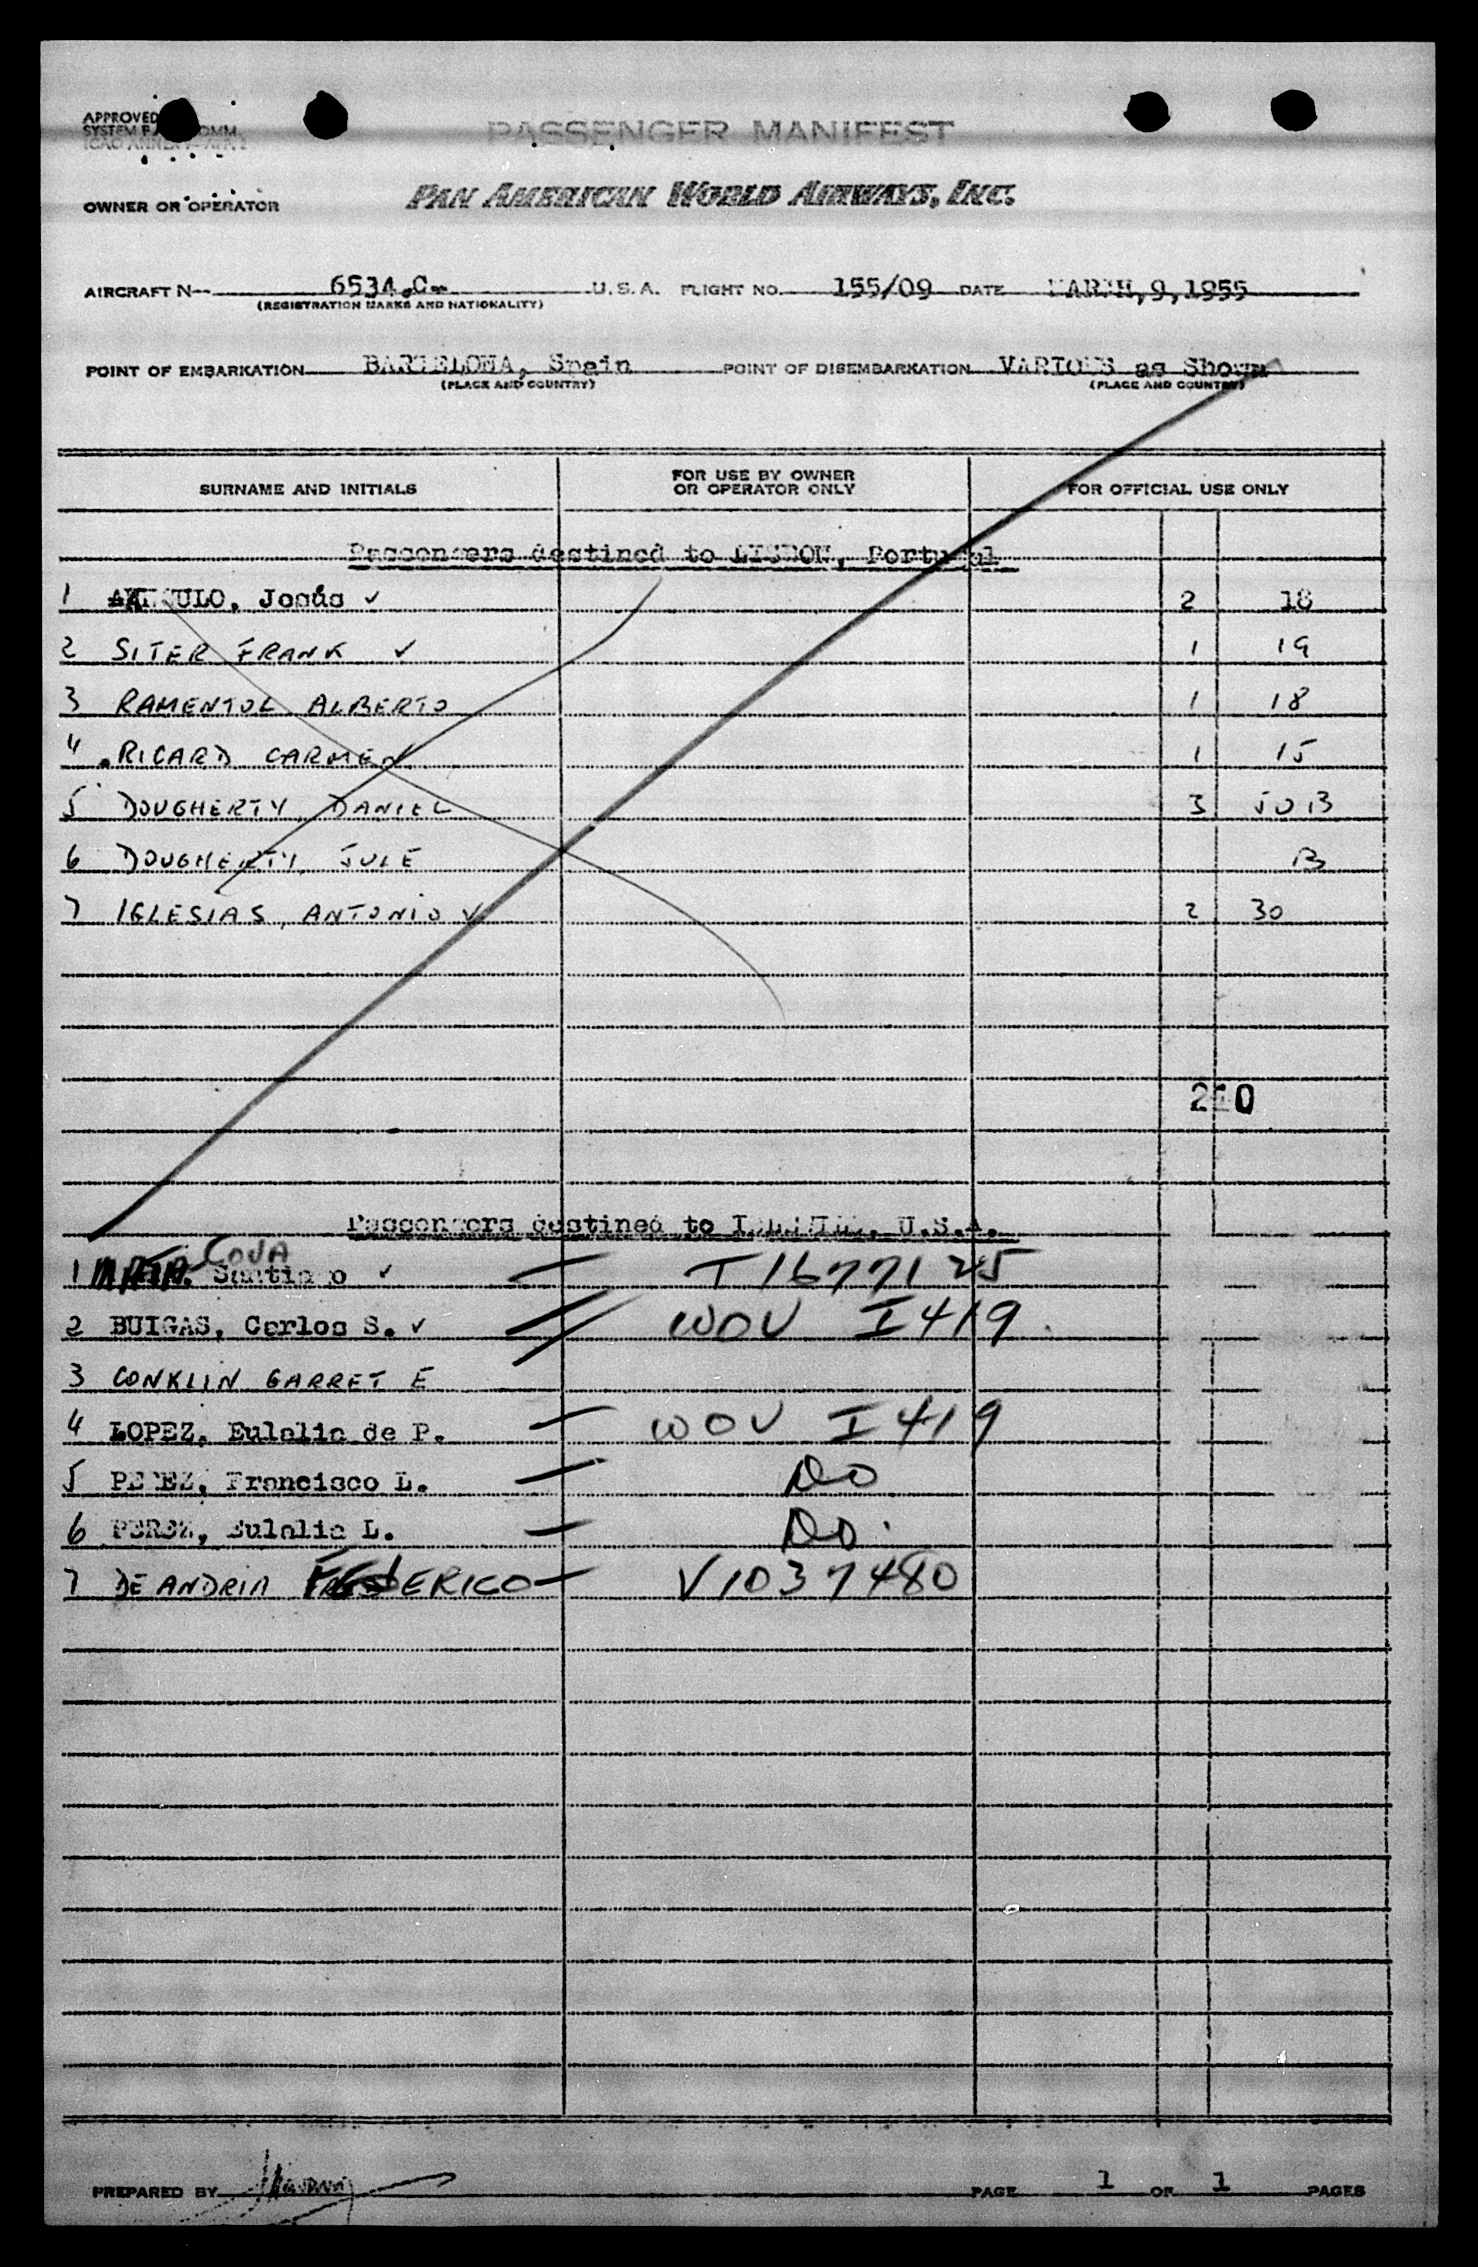 APPROVED
SYSTEM
PASSENGER MANIFEST
OWNER OR OPERATOR PAN AMERICAN WORLD AIRWAYS, INC.
AIRCRAFT N-- 6534.C- U.S.A. FLIGHT NO. 155/09 DATE MARCH,9,1955
(REGISTRATION MARKS AND NATIONALITY)
POINT OF EMBARKATION BARCELONA, Spain POINT OF DISEMBARKATION VARIOUS as Shown
(PLACE AND COUNTRY) (PLACE AND COUNTRY)
SURNAME AND INITIALS FOR USE BY OWNER OR OPERATOR ONLY FOR OFFICIAL USE ONLY
Passengers destined to LISBON, Portugal
1 Jesús ✓ 2 18
2 SITER FRANK ✓ 1 19
3 RAMENTOL ALBERTO 1 18
4 RICARD CARMEN 1 15
5 DOUGHERTY, DANIEL 3 50 B
6 DOUGHERTY, JULE B
7 IGLESIAS, ANTONIO ✓ 2 30
210
Passengers destined to U.S.A.
1 COVA Santiago ✓ — T1677125
2 BUIGAS, Carlos S. ✓ — WOV I419
3 CONKLIN GARRET E
4 LOPEZ, Eulalia de P. — WOV I419
5 PEREZ, Francisco L. — DO
6 PEREZ, Eulalia L. — DO
7 DE ANDRIA FEDERICO — V1037480
PREPARED BY PAGE 1 OF 1 PAGES